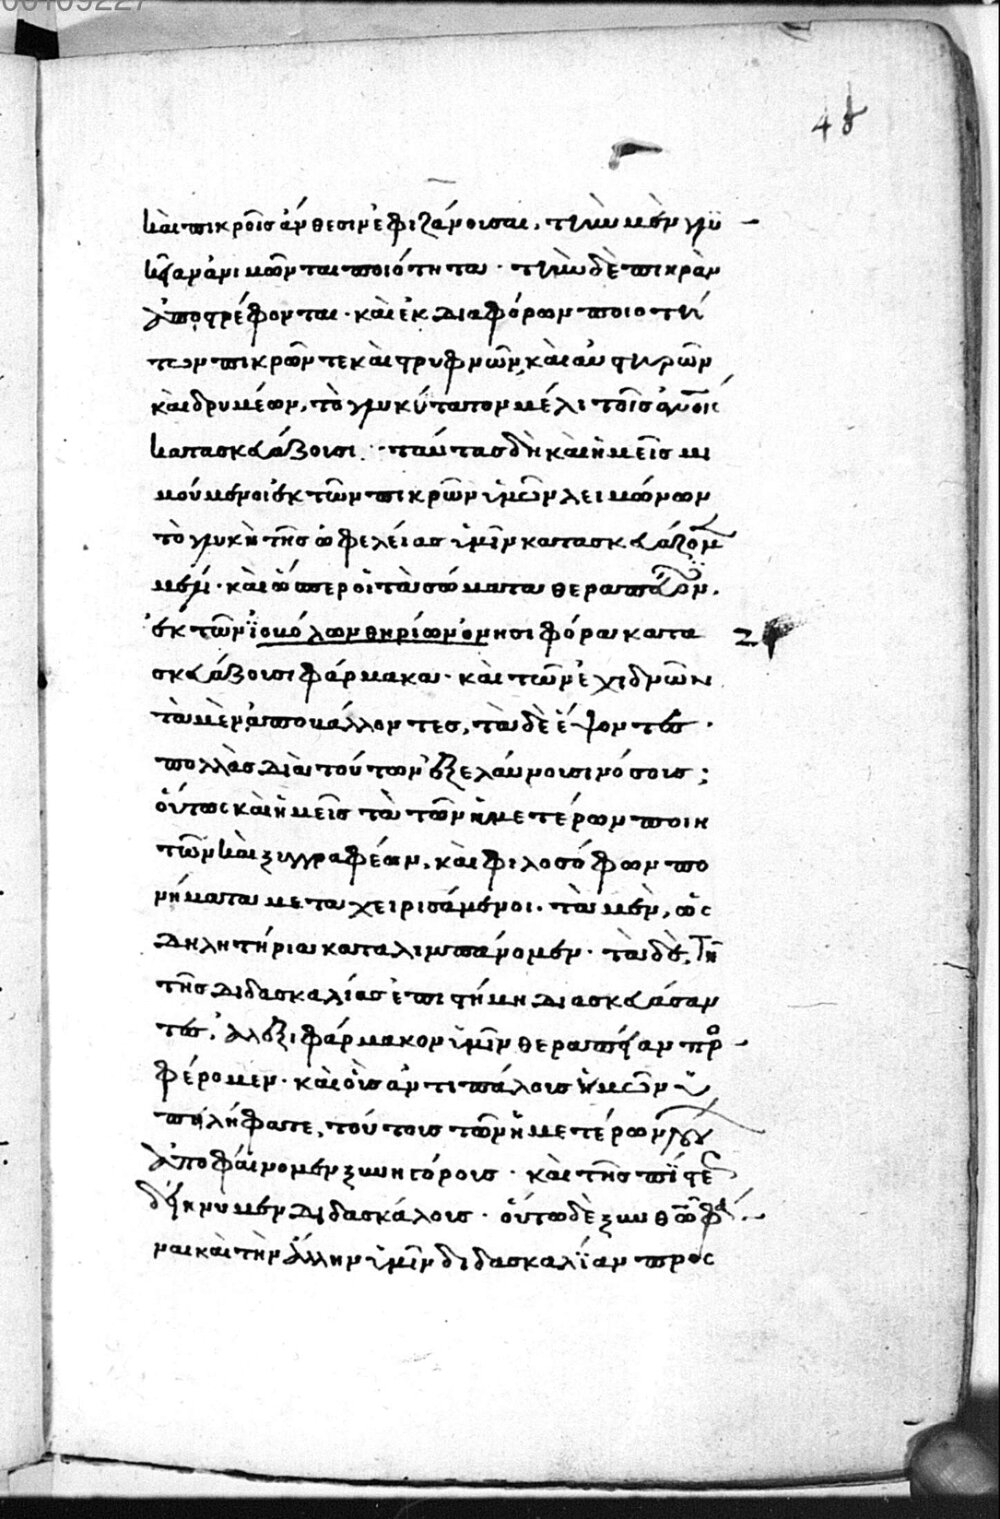 48
καὶ πικροῖς ἄνθεσιν ἐφιζάνουσαι, τὴν μὲν γλυ
κεῖαν ἀνιμῶνται ποιότητα· τὴν δὲ πικρὰν
ἀποστρέφονται· καὶ ἐκ διαφόρων ποιοτή
των πικρῶν τε καὶ στρυφνῶν, καὶ αὐστηρῶν
καὶ δριμέων, τὸ γλυκύτατον μέλι τοῖς ἀνοις
κατασκευάζουσι. ταύτας δὴ καὶ ἡμεῖς μι
μούμενοι ἐκ τῶν πικρῶν ὑμῶν λειμώνων
τὸ γλυκὺ τῆς ὠφελείας ὑμῖν κατασκευάζομεν
μέλι· καὶ ὥσπερ οἱ τὰ σώματα θεραπεύον.
ἐκ τῶν ἰοβόλων θηρίων ὀνησιφόρα κατα
σκευάζουσι φάρμακα· καὶ τῶν ἐχιδνῶν
τὰ μὲν ἀποβάλλοντες, τὰ δὲ ἕψοντες·
πολλὰς διὰ τούτων ἐξελαύνουσι νόσους;
οὕτως καὶ ἡμεῖς τὰ τῶν ἡμετέρων ποιη
τῶν καὶ ξυγγραφέων, καὶ φιλοσόφων πο
νήματα μεταχειρισάμενοι· τὰ μὲν, ὡς
δηλητήρια καταλιμπάνομεν· τὰ δὲ, τῇ
τῆς διδασκαλίας ἐπιστήμῃ διασκευάσαν
τες, ἀλεξιφάρμακον ὑμῖν θεραπείαν προ
φέρομεν· καὶ οἷς ἀντιπάλοις ἡμῶν ὑ
πειλήφατε, τούτοις τῶν ἡμετέρων λόγων
ἀποφαίνομεν ξυνηγόροις· καὶ τῆς πίστεως
δείκνυμεν διδασκάλοις· οὕτω δὲ ξὺν θεῷ φά
ναι καὶ τὴν ἄλλην ὑμῖν διδασκαλίαν προς